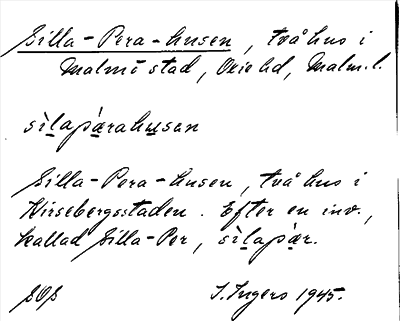 Silla-Pera-husen, två hus i
Malmö stad, Oxie hd, Malm. l.
sìlapæ̀rahusan
Silla-Pera-husen, två hus i
Kirsebergsstaden. Efter en inv.,
kallad Silla-Per, sìlapæ̀r.
I. Ingers 1945.